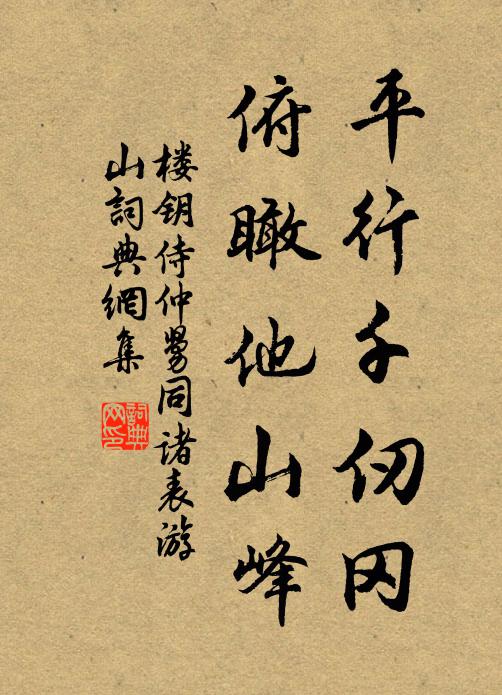 平行千仞冈
俯瞰他山峰
楼钥侍仲舅同诸表游
山詞典網集
詞典网印